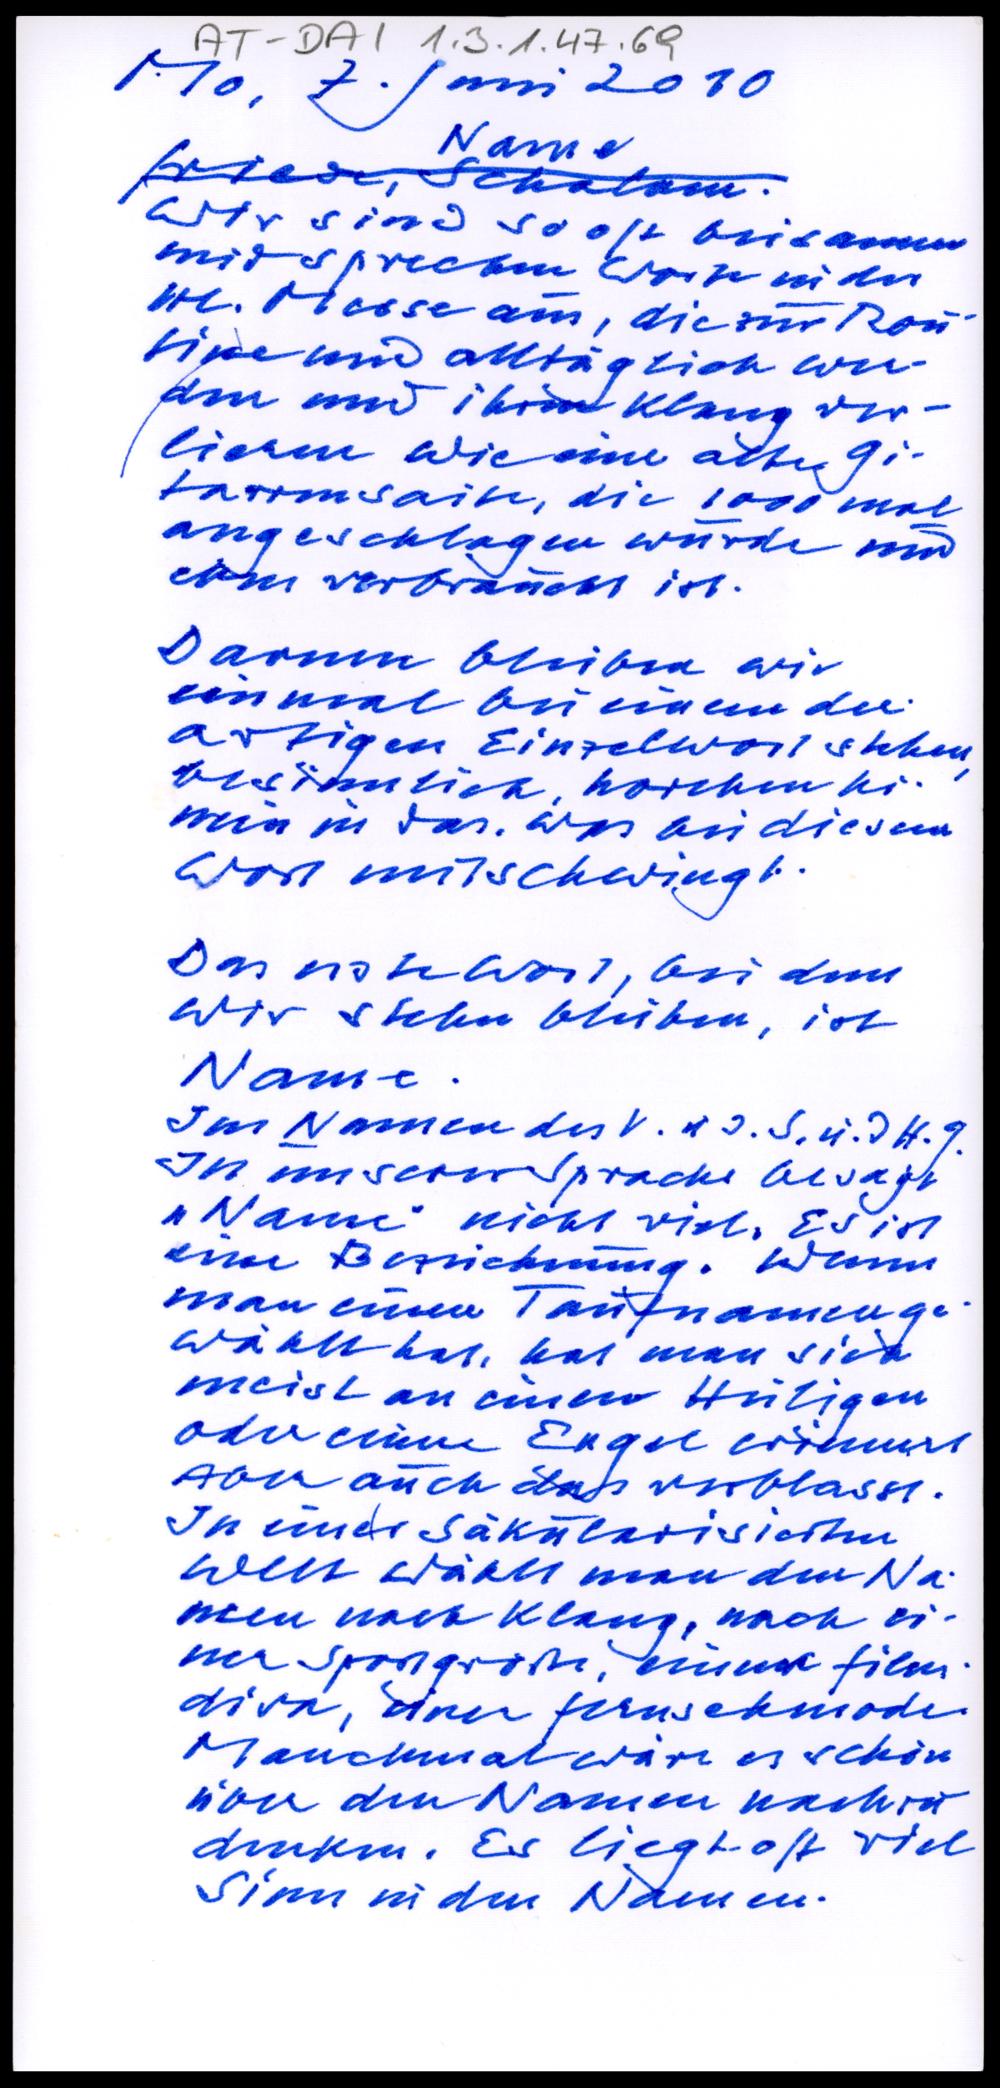 AT-DAI 1.3.1.47.69
Mo, 7. Juni 2010
Name
Friede, Schalom.
Wir sind so oft beisammen
und sprechen Worte in der
Hl. Messe aus, die zur Rou-
tine und alltäglich wer-
den und ihren Klang ver-
lieren wie eine alte Gi-
tarrensaite, die 1000 mal
angeschlagen wurde und
eben verbraucht ist.
Darum bleiben wir
einmal bei einem der-
artigen Einzelwort stehen,
besinnlich, horchen hi-
nein in das, was bei diesem
Wort mitschwingt.
Das erste Wort, bei dem
wir stehen bleiben, ist
Name.
Im Namen des V. u d. S. u. d H. G.
In unserer Sprache besagt
"Name" nicht viel. Es ist
eine Bezeichnung. Wenn
man einen Taufnamen ge-
wählt hat, hat man sich
meist an einen Heiligen
oder einen Engel erinnert
Aber auch das verblasst.
In einer säkularisierten
Welt wählt man den Na-
men nach Klang, nach ei-
ner Sportgröße, einer Film-
diva, einer Fernsehmode.
Manchmal wäre es schön
über den Namen nachzu
denken. Es liegt oft viel
Sinn in den Namen.